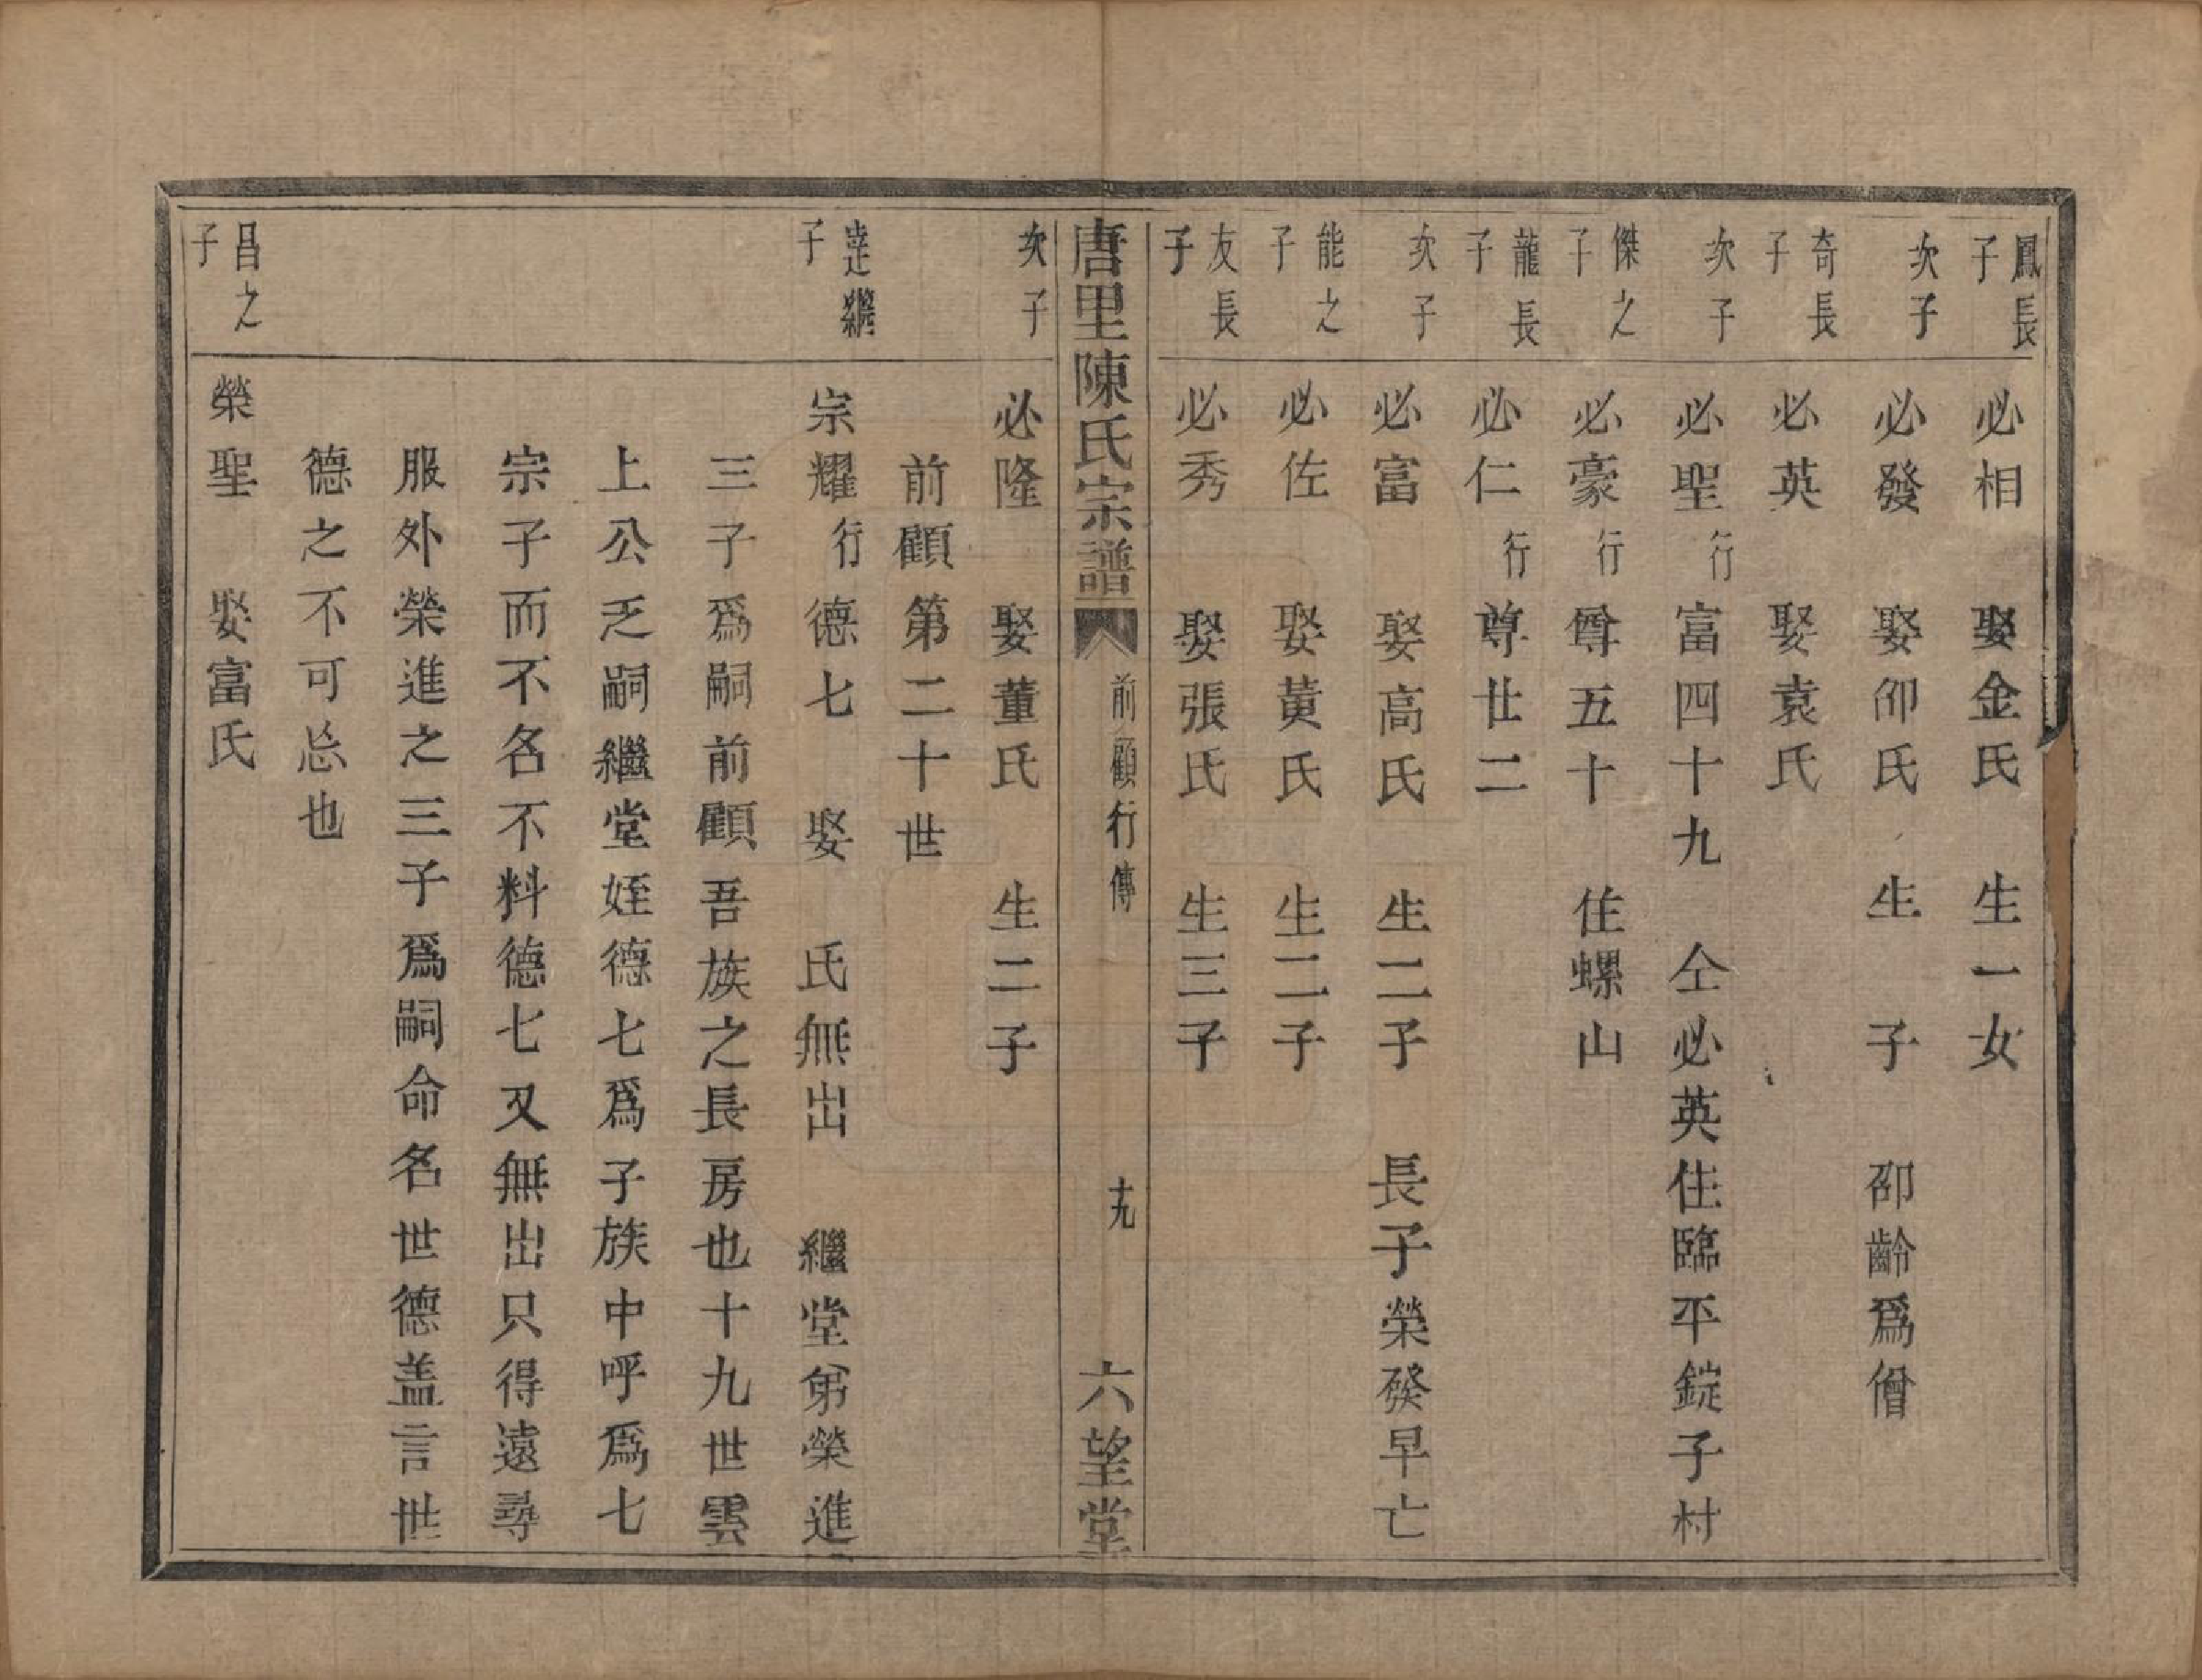 鳳長子　必相　娶金氏　生一女
次子　必發　娶卲氏　生　子　卲齡爲僧
奇長子　必英　娶袁氏
次子　必聖行富四十九　仝必英住臨平錠子村
傑之子　必豪行尊五十　住螺山
龍長子　必仁行尊廿二
次子　必富　娶高氏　生二子　長子榮發早亡
能之子　必佐　娶黃氏　生二子
友長子　必秀　娶張氏　生三子
唐里陳氏宗譜　前顧行傳　十九　六望堂
次子　必隆　娶董氏　生二子
前顧第二十世
達繼子　宗耀行德七　娶　氏無出　繼堂弟榮進
三子爲嗣前顧吾族之長房也十九世雲
上公乏嗣繼堂姪德七爲子族中呼爲七
宗子而不名不料德七又無出只得遠尋
服外榮進之三子爲嗣命名世德盖言世
德之不可忘也
昌之子　榮聖　娶富氏